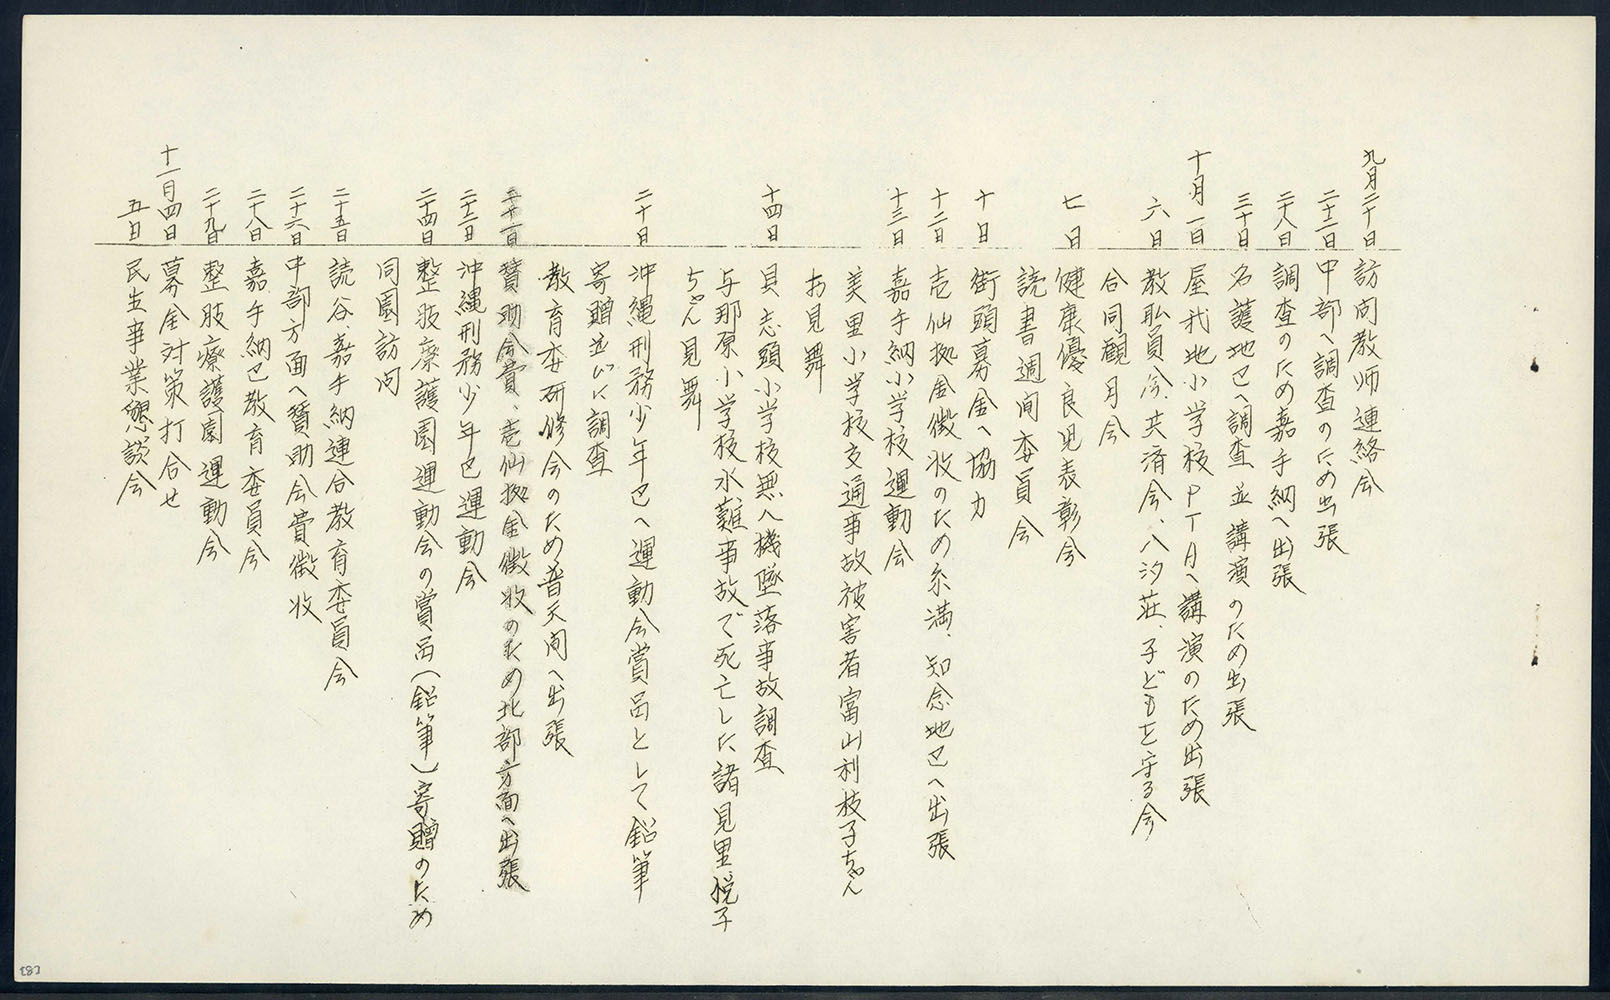 九月二十日 訪問教師連絡会
二十二日 中部へ調査のため出張
二十八日 調査のため嘉手納へ出張
三十日 名護地巴へ調査並講演のため出張
十月一日 屋我地小学校PTAへ講演のため出張
六日 教职員会、共済会、八汐荘、子どもを守る会
合同観月会
七日 健康優良児表彰会
読書週间委員会
十日 街頭募金へ協力
十二日 壱仙拠金徴收のため糸満、知念地巴へ出張
十三日 嘉手納小学校運動会
美里小学校交通事故被害者富山利枝子ちゃん
お見舞
十四日 具志頭小学校無人機墜落事故調査
与那原小学校水難事故で死亡した諸見里悦子
ちゃん見舞
二十日 沖縄刑務少年巴へ運動会賞品として鉛筆
寄贈並びに調査
教育委研修会のため普天间へ出張
賛助会費、壱仙拠金徴收のため北部方面へ出張
沖縄刑務少年巴運動会
二十四日 整肢療護園運動会の賞品(鉛筆)寄贈のため
同園訪问
二十五日 読谷、嘉手納連合教育委員会
二十六日 中部方面へ賛助会費徴收
二十八日 嘉手納巴教育委員会
二十九日 整肢療護園運動会
十一月四日 募金対策打合せ
五日 民生事業懇談会
[8]